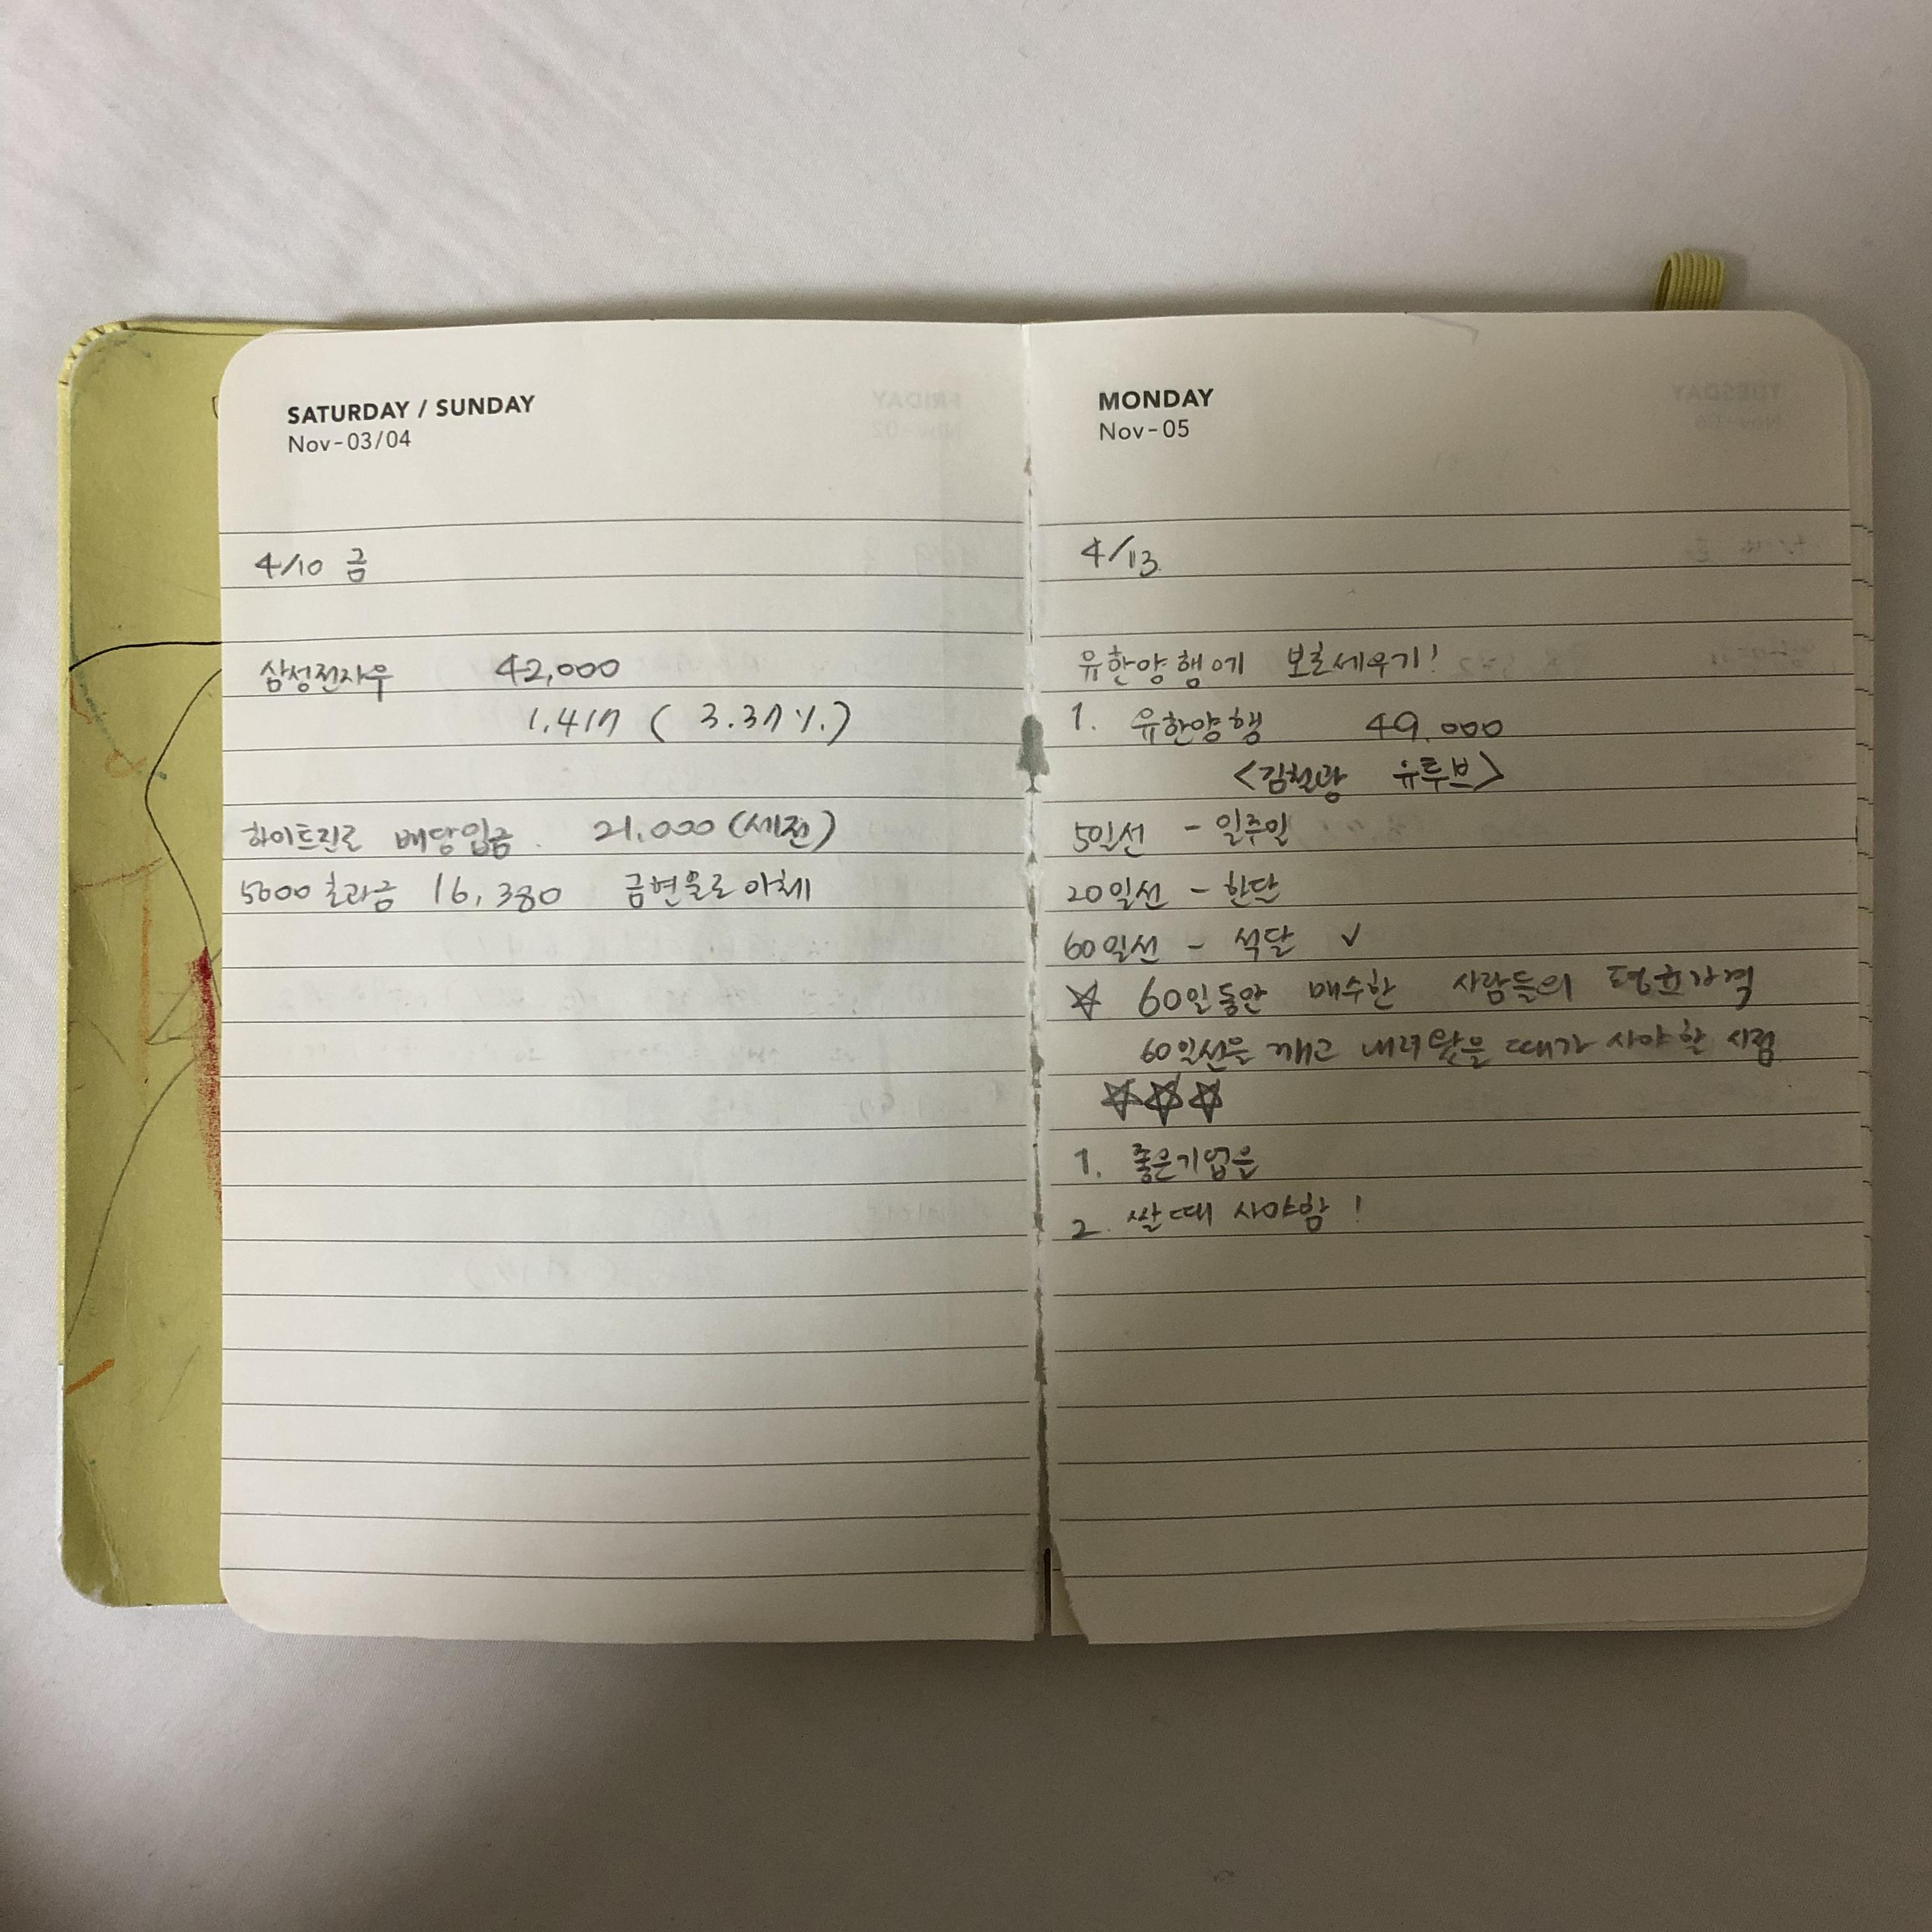 SATURDAY / SUNDAY
Nov-03/04
4/10 금
삼성전자우 42,000
1.417 (3.37%)
하이트진로 배당입금 21,000 (세전)
5000초과금 16,380 금현물로 이체
MONDAY
Nov-05
4/13
유한양행에 보초세우기!
1. 유한양행 49,000
<김철광 유튜브>
5일선 - 일주일
20일선 - 한달
60일선 - 석달 ✓
☆ 60일동안 매수한 사람들의 평균가격
60일선을 깨고 내려왔을 때가 사야할 시점
☆☆☆
1. 좋은기업을
2. 쌀때 사야함!